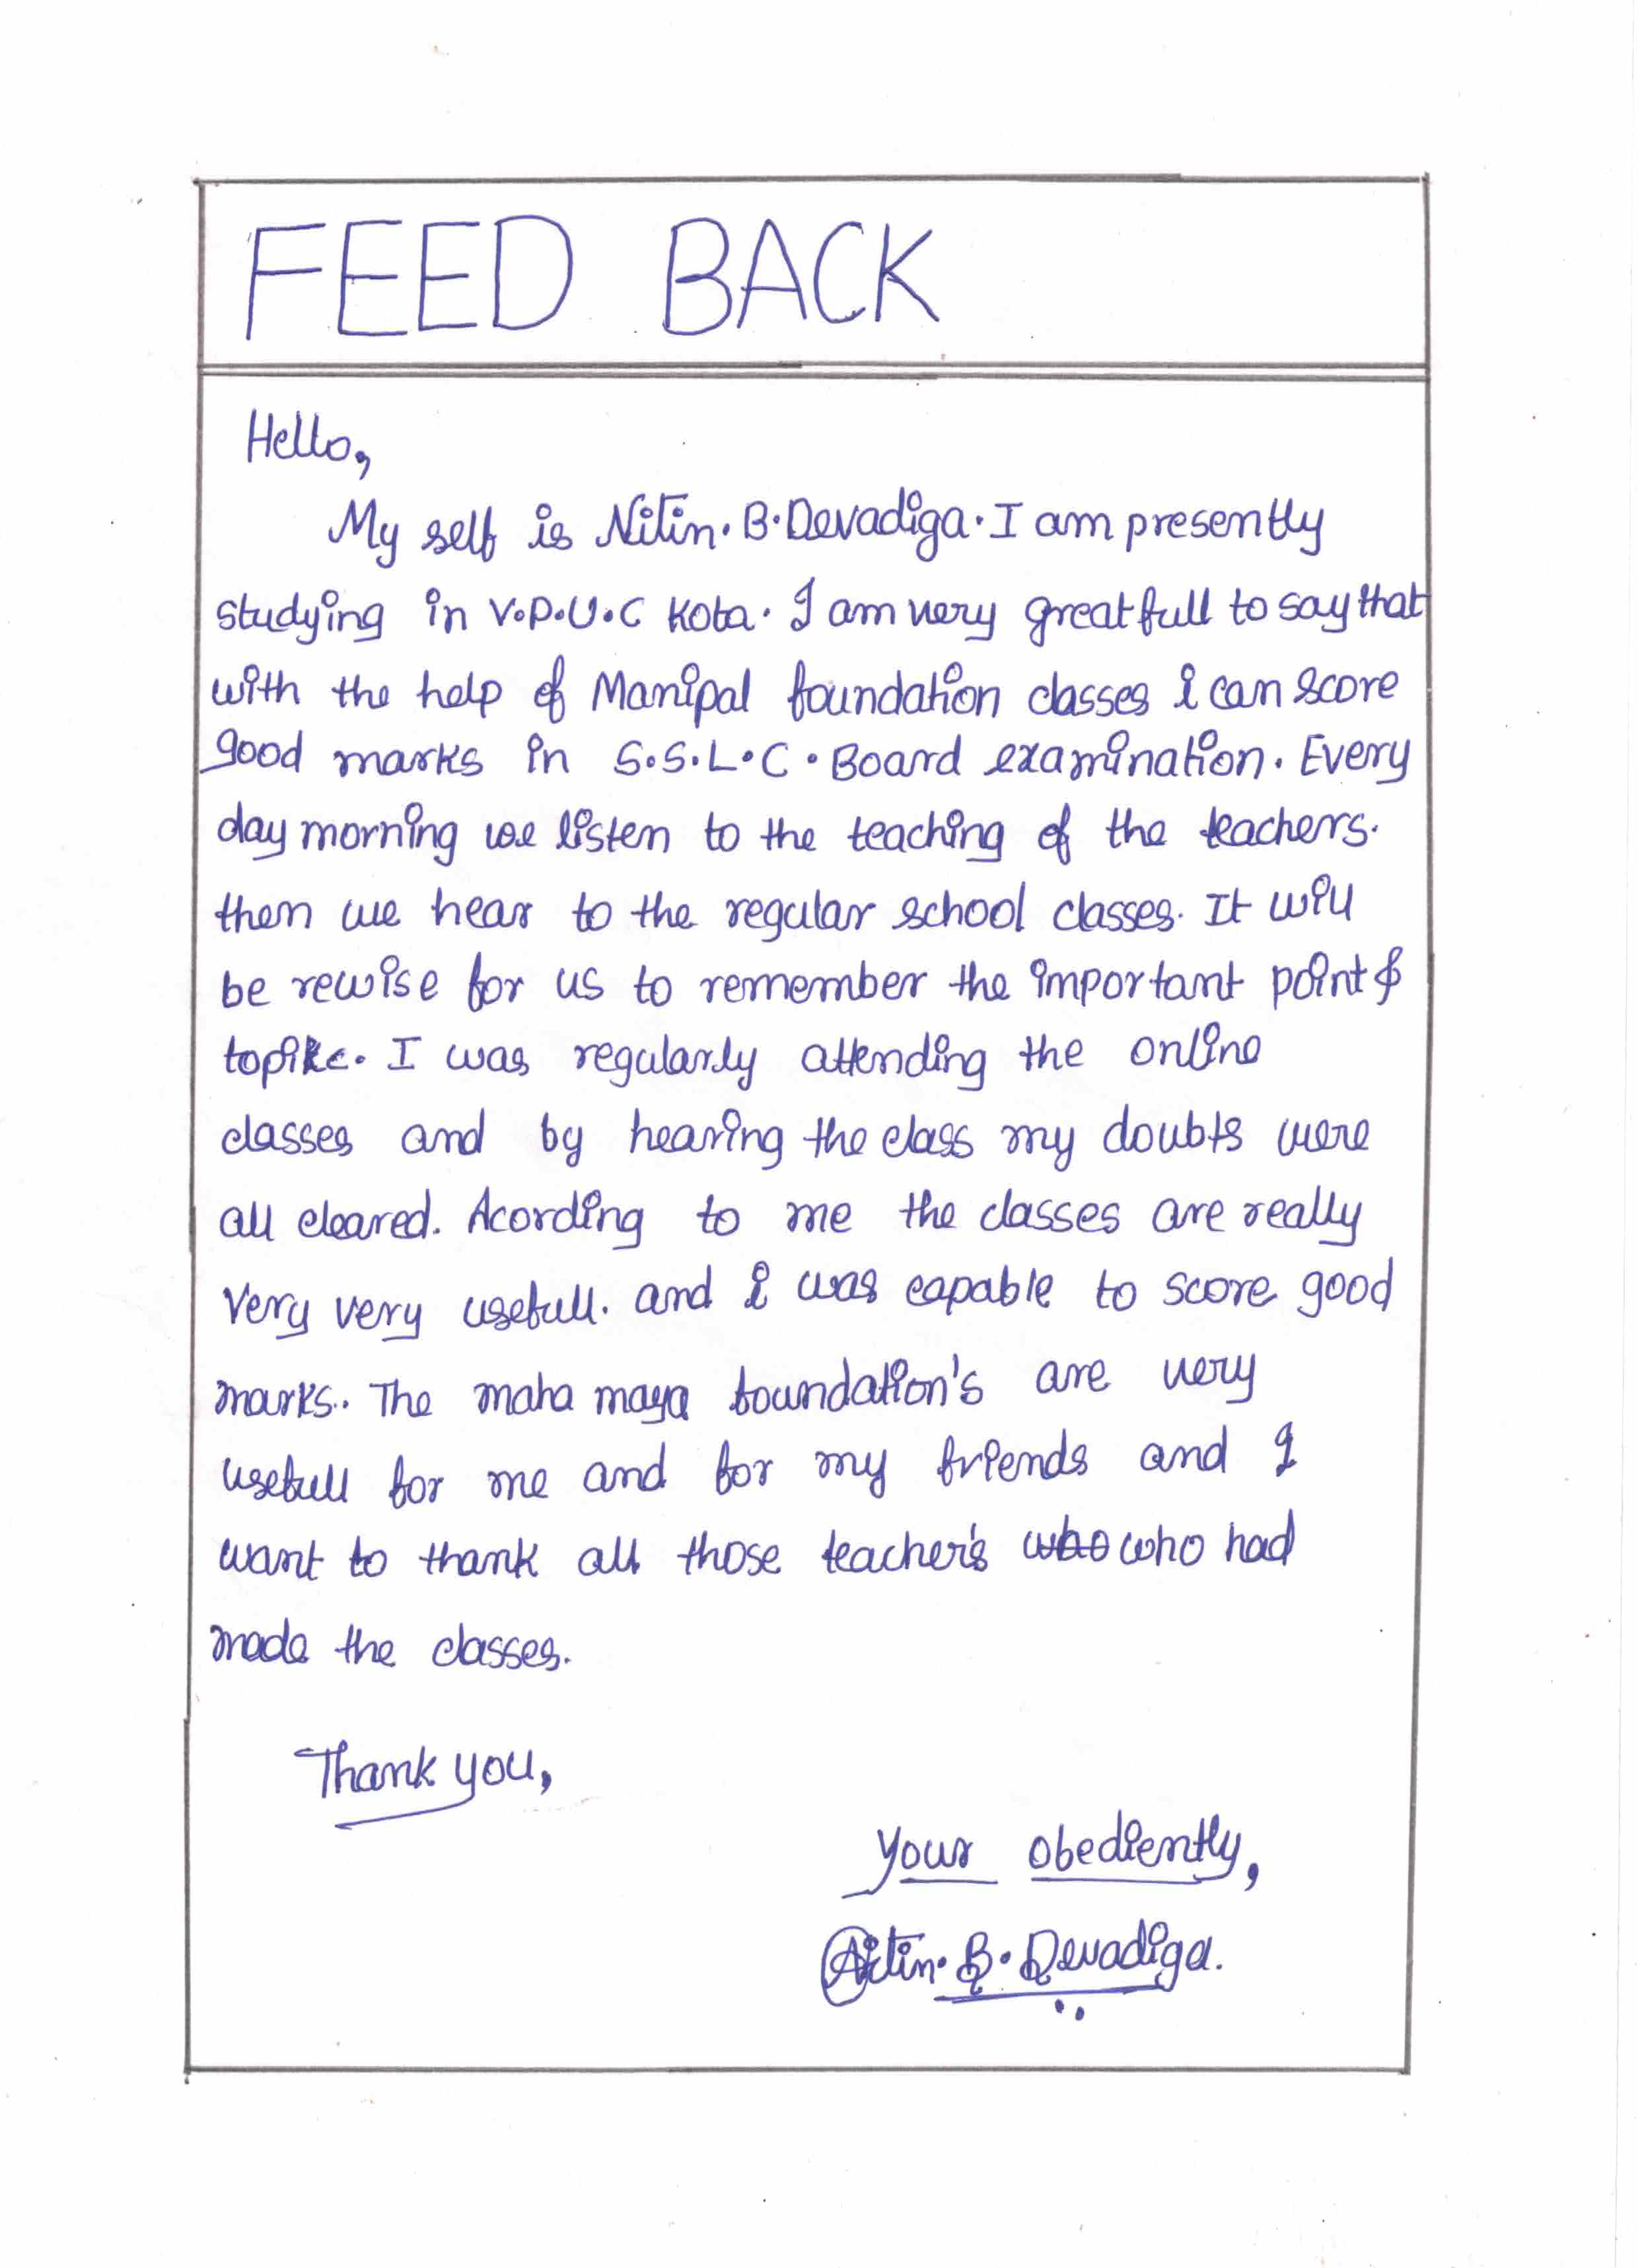 FEED BACK
Hello,
My self is Nitin. B. Devadiga. I am presently
studying in V.P.U.C Kota. I am very greatfull to say that
with the help of Manipal foundation classes i can score
good marks in S.S.L.C. Board examination. Every
day morning we listen to the teaching of the teachers.
then we hear to the regular school classes. It will
be rewise for us to remember the important point &
topikc. I was regularly attending the online
classes and by hearing the class my doubts were
all cleared. Acording to me the classes are really
very very usefull. and i was capable to score good
marks.. The maha maya foundation's are very
usefull for me and for my friends and I
want to thank all those teacher's who who had
made the classes.
Thank you,
Your obediently,
Nitin. B. Devadiga.